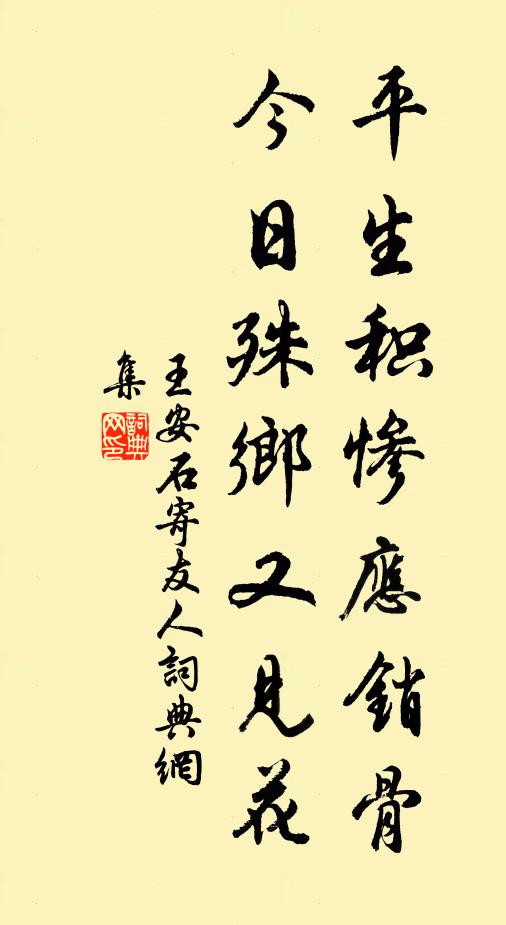 平生积惨應銷骨
今日殊鄉又見花
王安石寄友人詞典網
集
詞典
网印